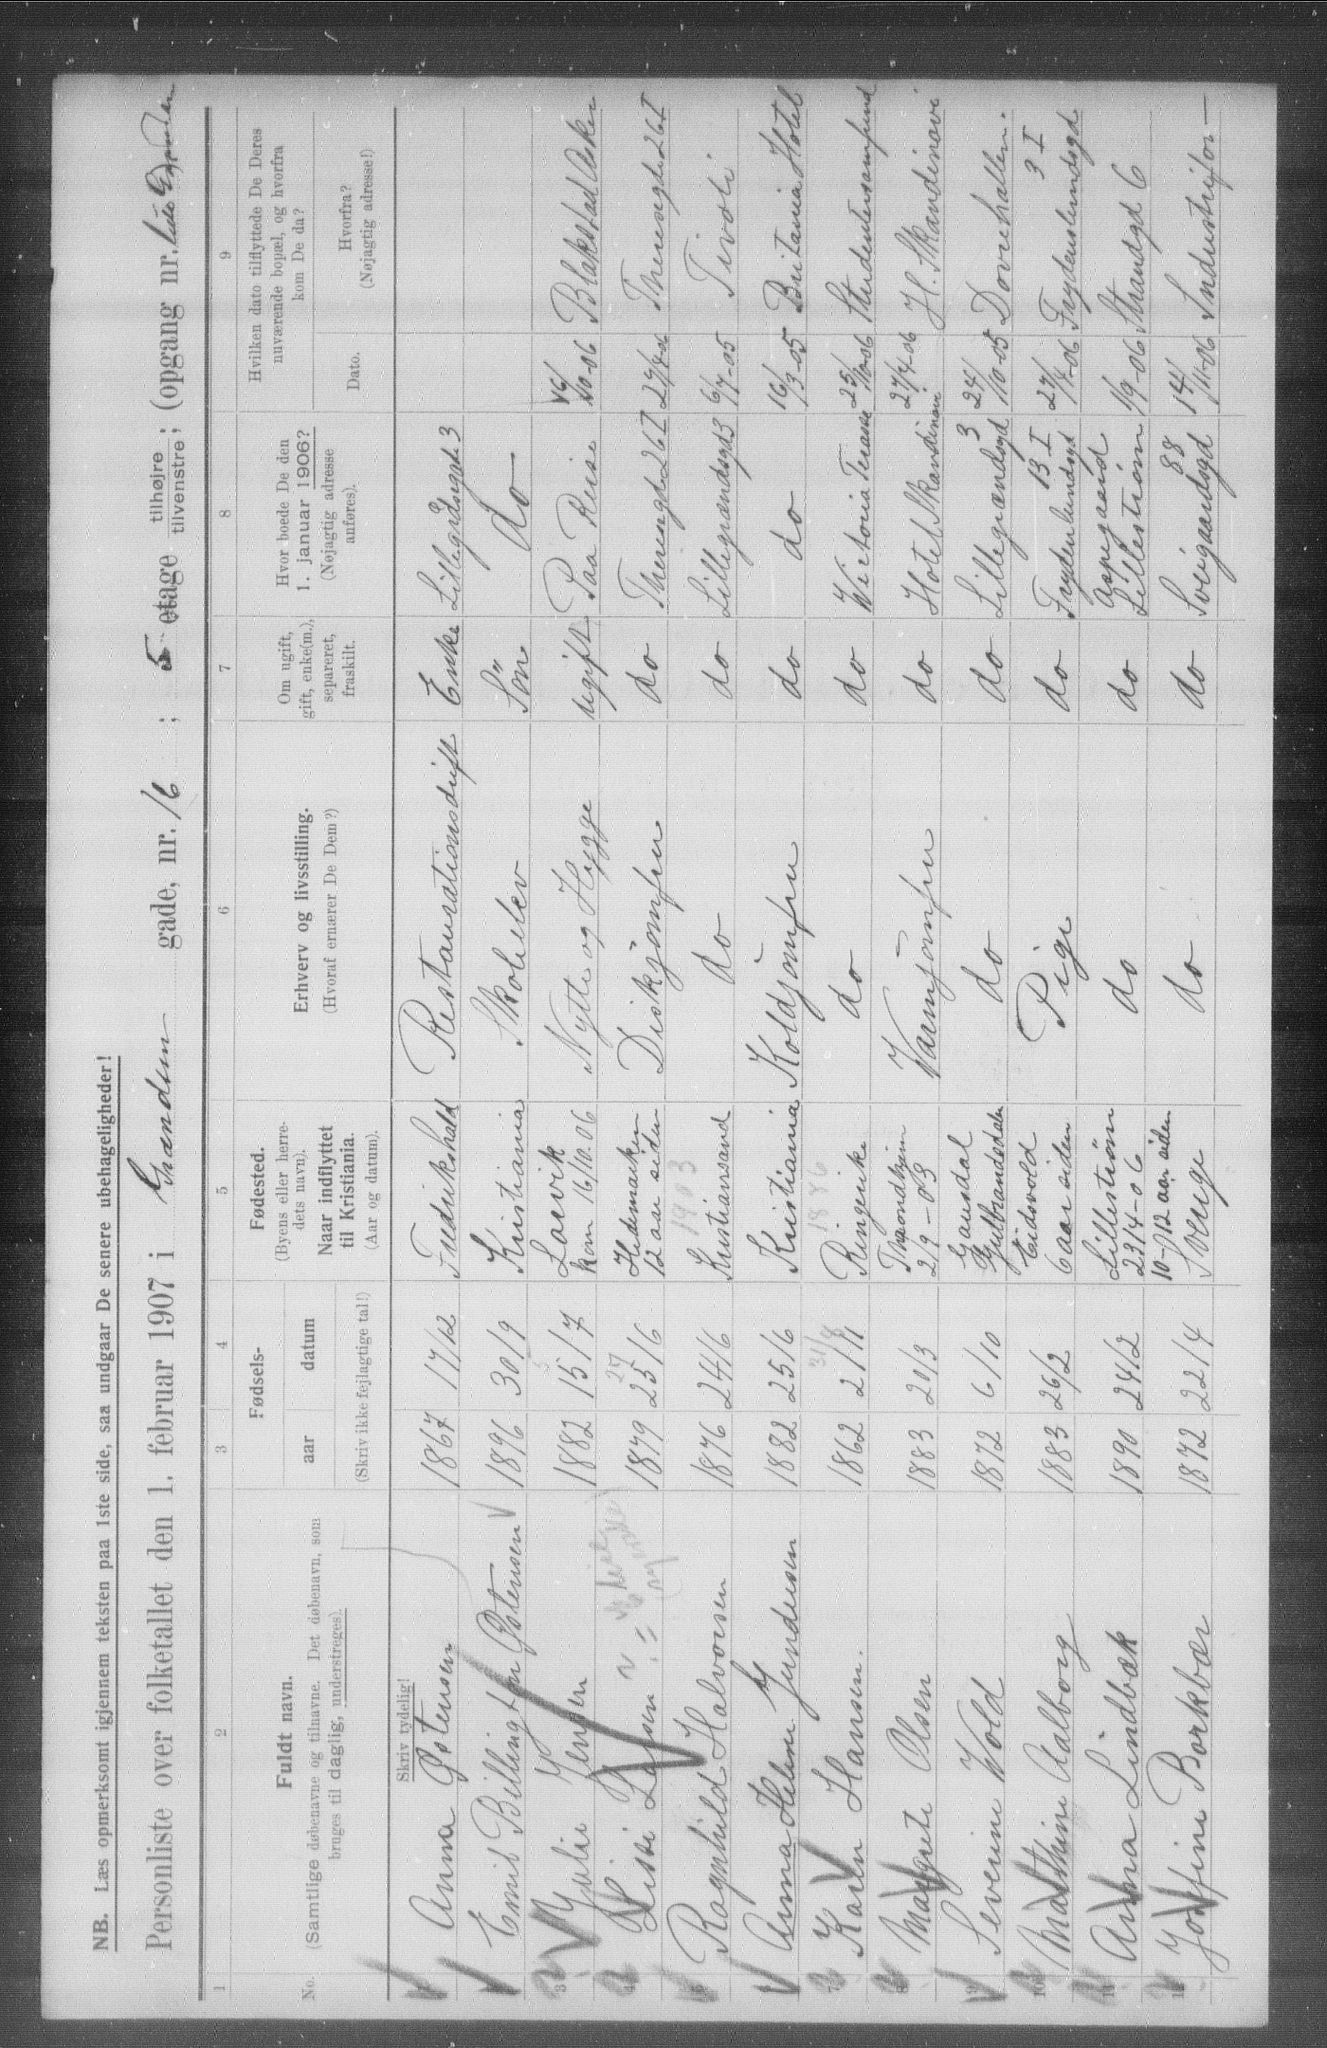 NB. Læs opmerksomt igjennem teksten paa 1ste side, saa undgaar De senere ubehageligheder!
Personliste over folketallet den 1. februar 1907 i Grændsen gade, nr. 16 ; 5 etage tilhøjre tilvenstre; (opgang nr.
1 2 3 4 5 6 7 8 9
No.
Fuldt navn.
(Samtlige døbenavne og tilnavne. Det døbenavn, som
bruges til daglig, understreges).
Fødsels-
aar datum
(Skriv ikke fejlagtige tal!)
Fødested.
(Byens eller herre-
dets navn).
Naar indflyttet
til Kristiania.
(Aar og datum).
Erhverv og livsstilling.
(Hvoraf ernærer De Dem?)
Om ugift,
gift, enke(m.),
separeret,
fraskilt.
Hvor boede De den
1. januar 1906?
(Nøjagtig adresse
anføres).
Hvilken dato tilflyttede De Deres
nuværende bopæl, og hvorfra
kom De da?
Dato.
Hvorfra?
(Nøjagtig adresse!)
Skriv tydelig!
Anna Østensen 1867 17/12 Fredrikshald Restaurationsdrift Enke Lillegrdsgd 3
Emil Billington Østensen 1896 30/9 Kristiania Skoleelev Søn do
3 Julie Jensen 1882 15/7 Larvik kom 16/10-06 Nytte og Hygge ugift Paa Reise 16/10-06 Blakstad Asker
4 Lissi Larsen 1879 25/6 27 Hedemarken 12 aar siden Diskjomfru do Theresegd 26 I 27/4 06 Theresegd 26 I
Ragnhild Halvorsen 1876 24/6 1903 Kristiansand do do Lillegrændsegd 3 6/7-05 Tivoli
Anna Helene Gundersen 1882 25/6 Kristiania Koldjomfru do do 16/3-05 Britania Hotel
7 Karen Hansen. 1862 21/11 31/8 1886 Ringerike do do Victoria Terasse 25/10-06 Studentersamfund
8 Margrete Olsen 1883 20/3 Throndhjem 2/9-03 Varmjomfru do Hotel Skandinavi 27/4-06 H. Skandinavi
Severin Wold 1872 6/10 Gausdal Gulbrandsdalen do do Lillegrændsegd 3 24/10-05 Dovrehallen.
10 Mathine Aalborg 1883 26/2 Eidsvold 6 aar siden Pige do Frydenlundsgd 13 I 27/4-06 Frydenlundsgd 3 I
11 Anna Lindbæk 1890 24/2 Lillestrøm 23/4-06 do do Aspegaard Lillestrøm 1/9-06 Strandgd 6
Josefine Borkbær 1872 22/4 10-/12 aar siden Sverige do do Sveigaardgd 88 14/11-06 Industrifor—